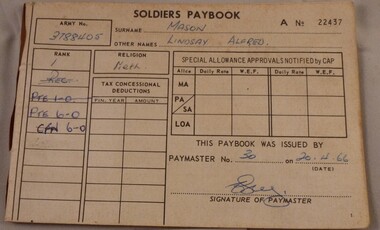 SOLDIERS PAYBOOK
A No 22437
ARMY No.
3788405
SURNAME MASON
OTHER NAMES LINDSAY ALFRED.
RANK
RELIGION
Meth
SPECIAL ALLOWANCE APPROVALS NOTIFIED by CAP
Allce Daily Rate W.E.F. Daily Rate W.E.F.
TAX CONCESSIONAL DEDUCTIONS
FIN. YEAR AMOUNT
REC
PTE 1-0
PTE 6-0
CFN 6-0
MA
PA/SA
LOA
THIS PAYBOOK WAS ISSUED BY
PAYMASTER No. 30 on 20.4.66
(DATE)
SIGNATURE OF PAYMASTER
1